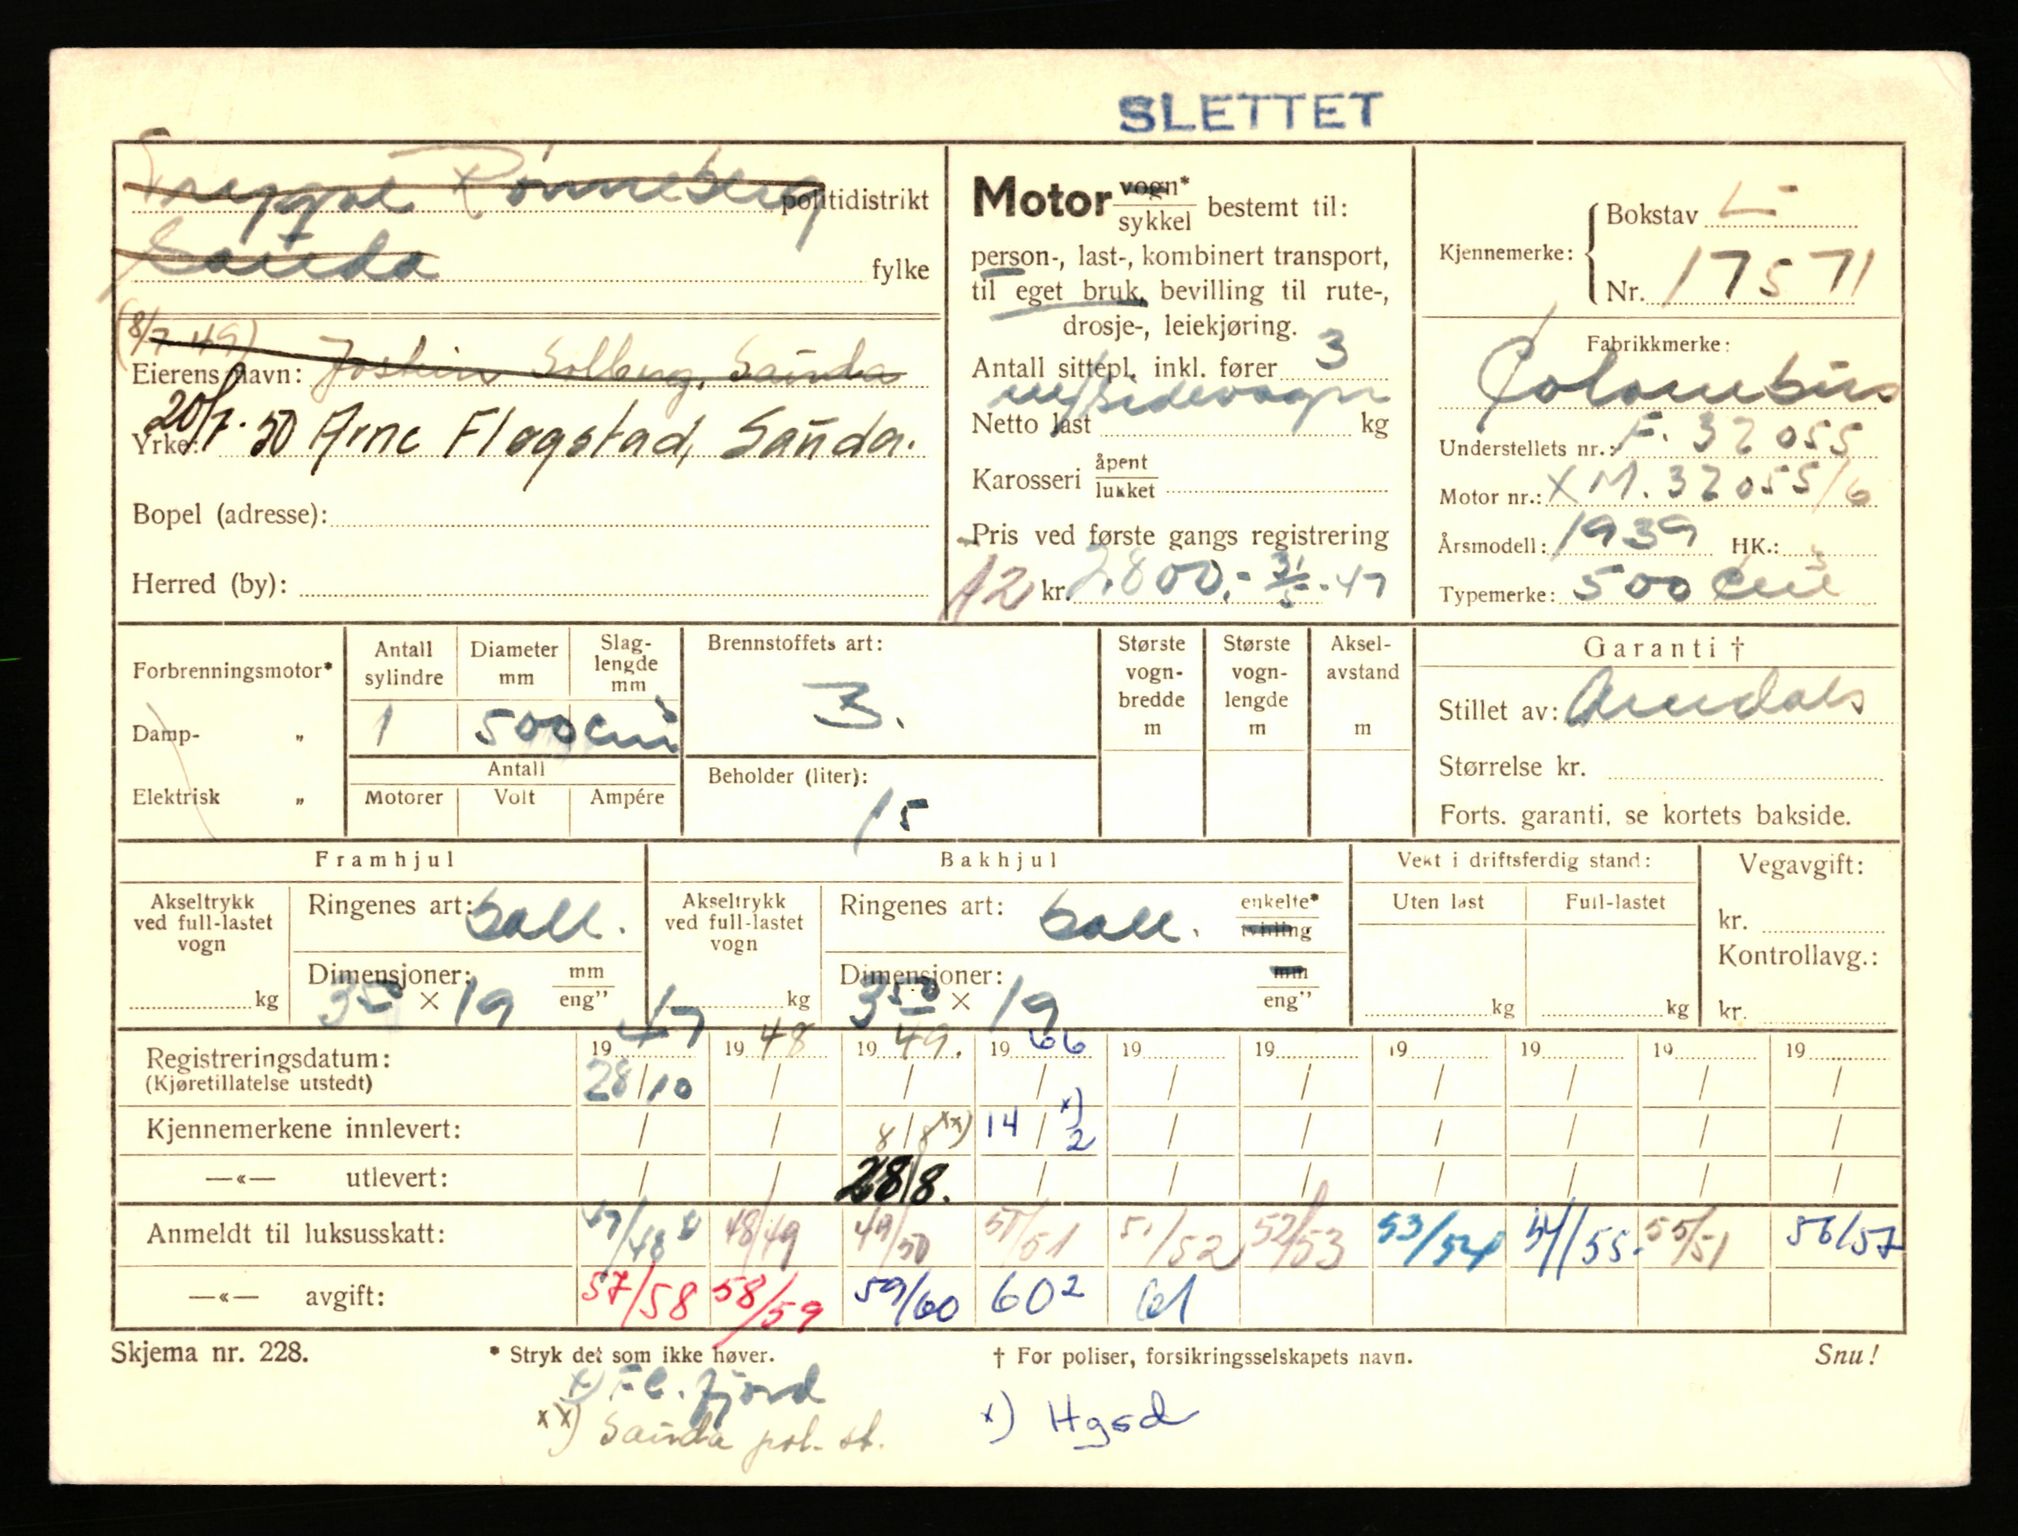 SLETTET
Trygve Rønneberg politidistrikt
Sauda fylke
(8/7 49)
Eierens navn: Jostein Solberg, Sauda
20/7. 50 Arne Flogstad, Sauda.
Yrke:
Bopel (adresse):
Herred (by):
Motor vogn*
sykkel bestemt til:
person-, last-, kombinert transport,
til eget bruk, bevilling til rute-,
drosje-, leiekjøring.
Antall sittepl. inkl. fører 3
m/sidevogn
Netto last kg
Karosseri åpent
lukket
Pris ved første gangs registrering
12 kr. 2.800,- 31/5-47
Kjennemerke: Bokstav L-
Nr. 17571
Fabrikkmerke:
Columbus
Understellets nr.: F. 32055
Motor nr.: X M. 32055/6
Årsmodell: 1939 HK.:
Typemerke: 500 cm3
Forbrenningsmotor*
Damp- „
Elektrisk „
Antall sylindre
Diameter mm
Slag-lengde mm
1 500 cm3
Antall
Motorer Volt Ampére
Brennstoffets art:
3.
Beholder (liter):
15
Største vogn-bredde m
Største vogn-lengde m
Aksel-avstand m
Garanti †
Stillet av: Arendals
Størrelse kr.
Forts. garanti, se kortets bakside.
Framhjul
Akseltrykk ved full-lastet vogn
kg
Ringenes art: ball.
Dimensjoner: mm
350 × 19 eng”
Bakhjul
Akseltrykk ved full-lastet vogn
kg
Ringenes art: ball. enkelte*
tvilling
Dimensjoner: mm
350 × 19 eng”
Vekt i driftsferdig stand:
Uten last Full-lastet
kg kg
Vegavgift:
kr.
Kontrollavg.:
kr.
Registreringsdatum: 19 47 19 48 19 49. 19 66 19 19 19 19 19 19
(Kjøretillatelse utstedt) 28/10 / / / / / / / / /
Kjennemerkene innlevert: / / 8/8 xx) 14/2 x) / / / / / /
—«— utlevert: / / 28/8. / / / / / / /
Anmeldt til luksusskatt: 47/48 48/49 49/50 50/51 51/52 52/53 53/54 54/55. 55/51 56/57
—«— avgift: 57/58 58/59 59/60 602 61
Skjema nr. 228.
* Stryk det som ikke høver.
† For poliser, forsikringsselskapets navn.
Snu!
fjord
xx) Sauda pol. st.
x) Hgsd